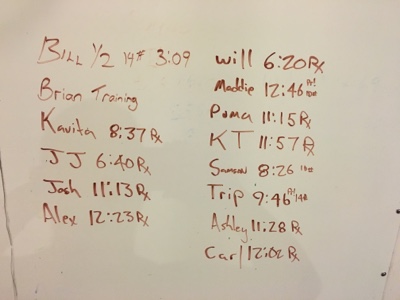 Bill 1/2 14# 3:09
Brian Training
Kavita 8:37 Rx
JJ 6:40 Rx
Josh 11:13 Rx
Alex 12:23 Rx
Will 6:20 Rx
Maddie 12:46
Poma 11:15 Rx
KT 11:57 Rx
Samson 8:26
Trip 9:46
Ashley 11:28 Rx
Carl 12:02 Rx